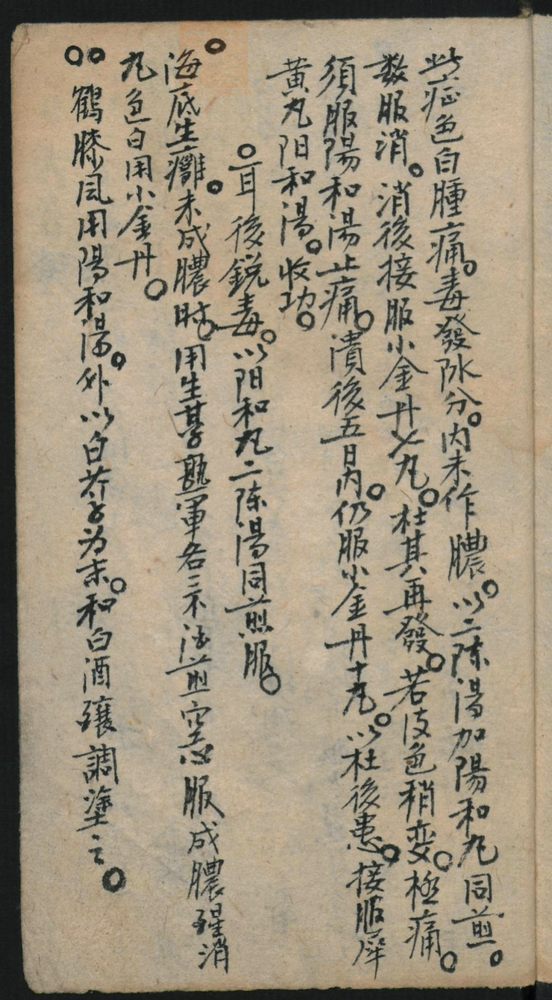 此症色白腫痛。毒發阴分。内未作膿。以二陳湯加陽和丸同煎。
数服消。消後接服小金丹七丸。杜其再發。若皮色稍变。極痛。
須服陽和湯止痛。潰後五日内。仍服小金丹十丸。以杜後患。接服犀
黄丸阳和湯。收功。
耳後銳毒。以阳和丸二陈湯同煎服。
海底生癰。未成膿时。用生草熟軍各三不法煎空心服成膿醒消
丸色白用小金丹。
鶴膝风用陽和湯。外以白芥子为末。和白酒釀調塗之。